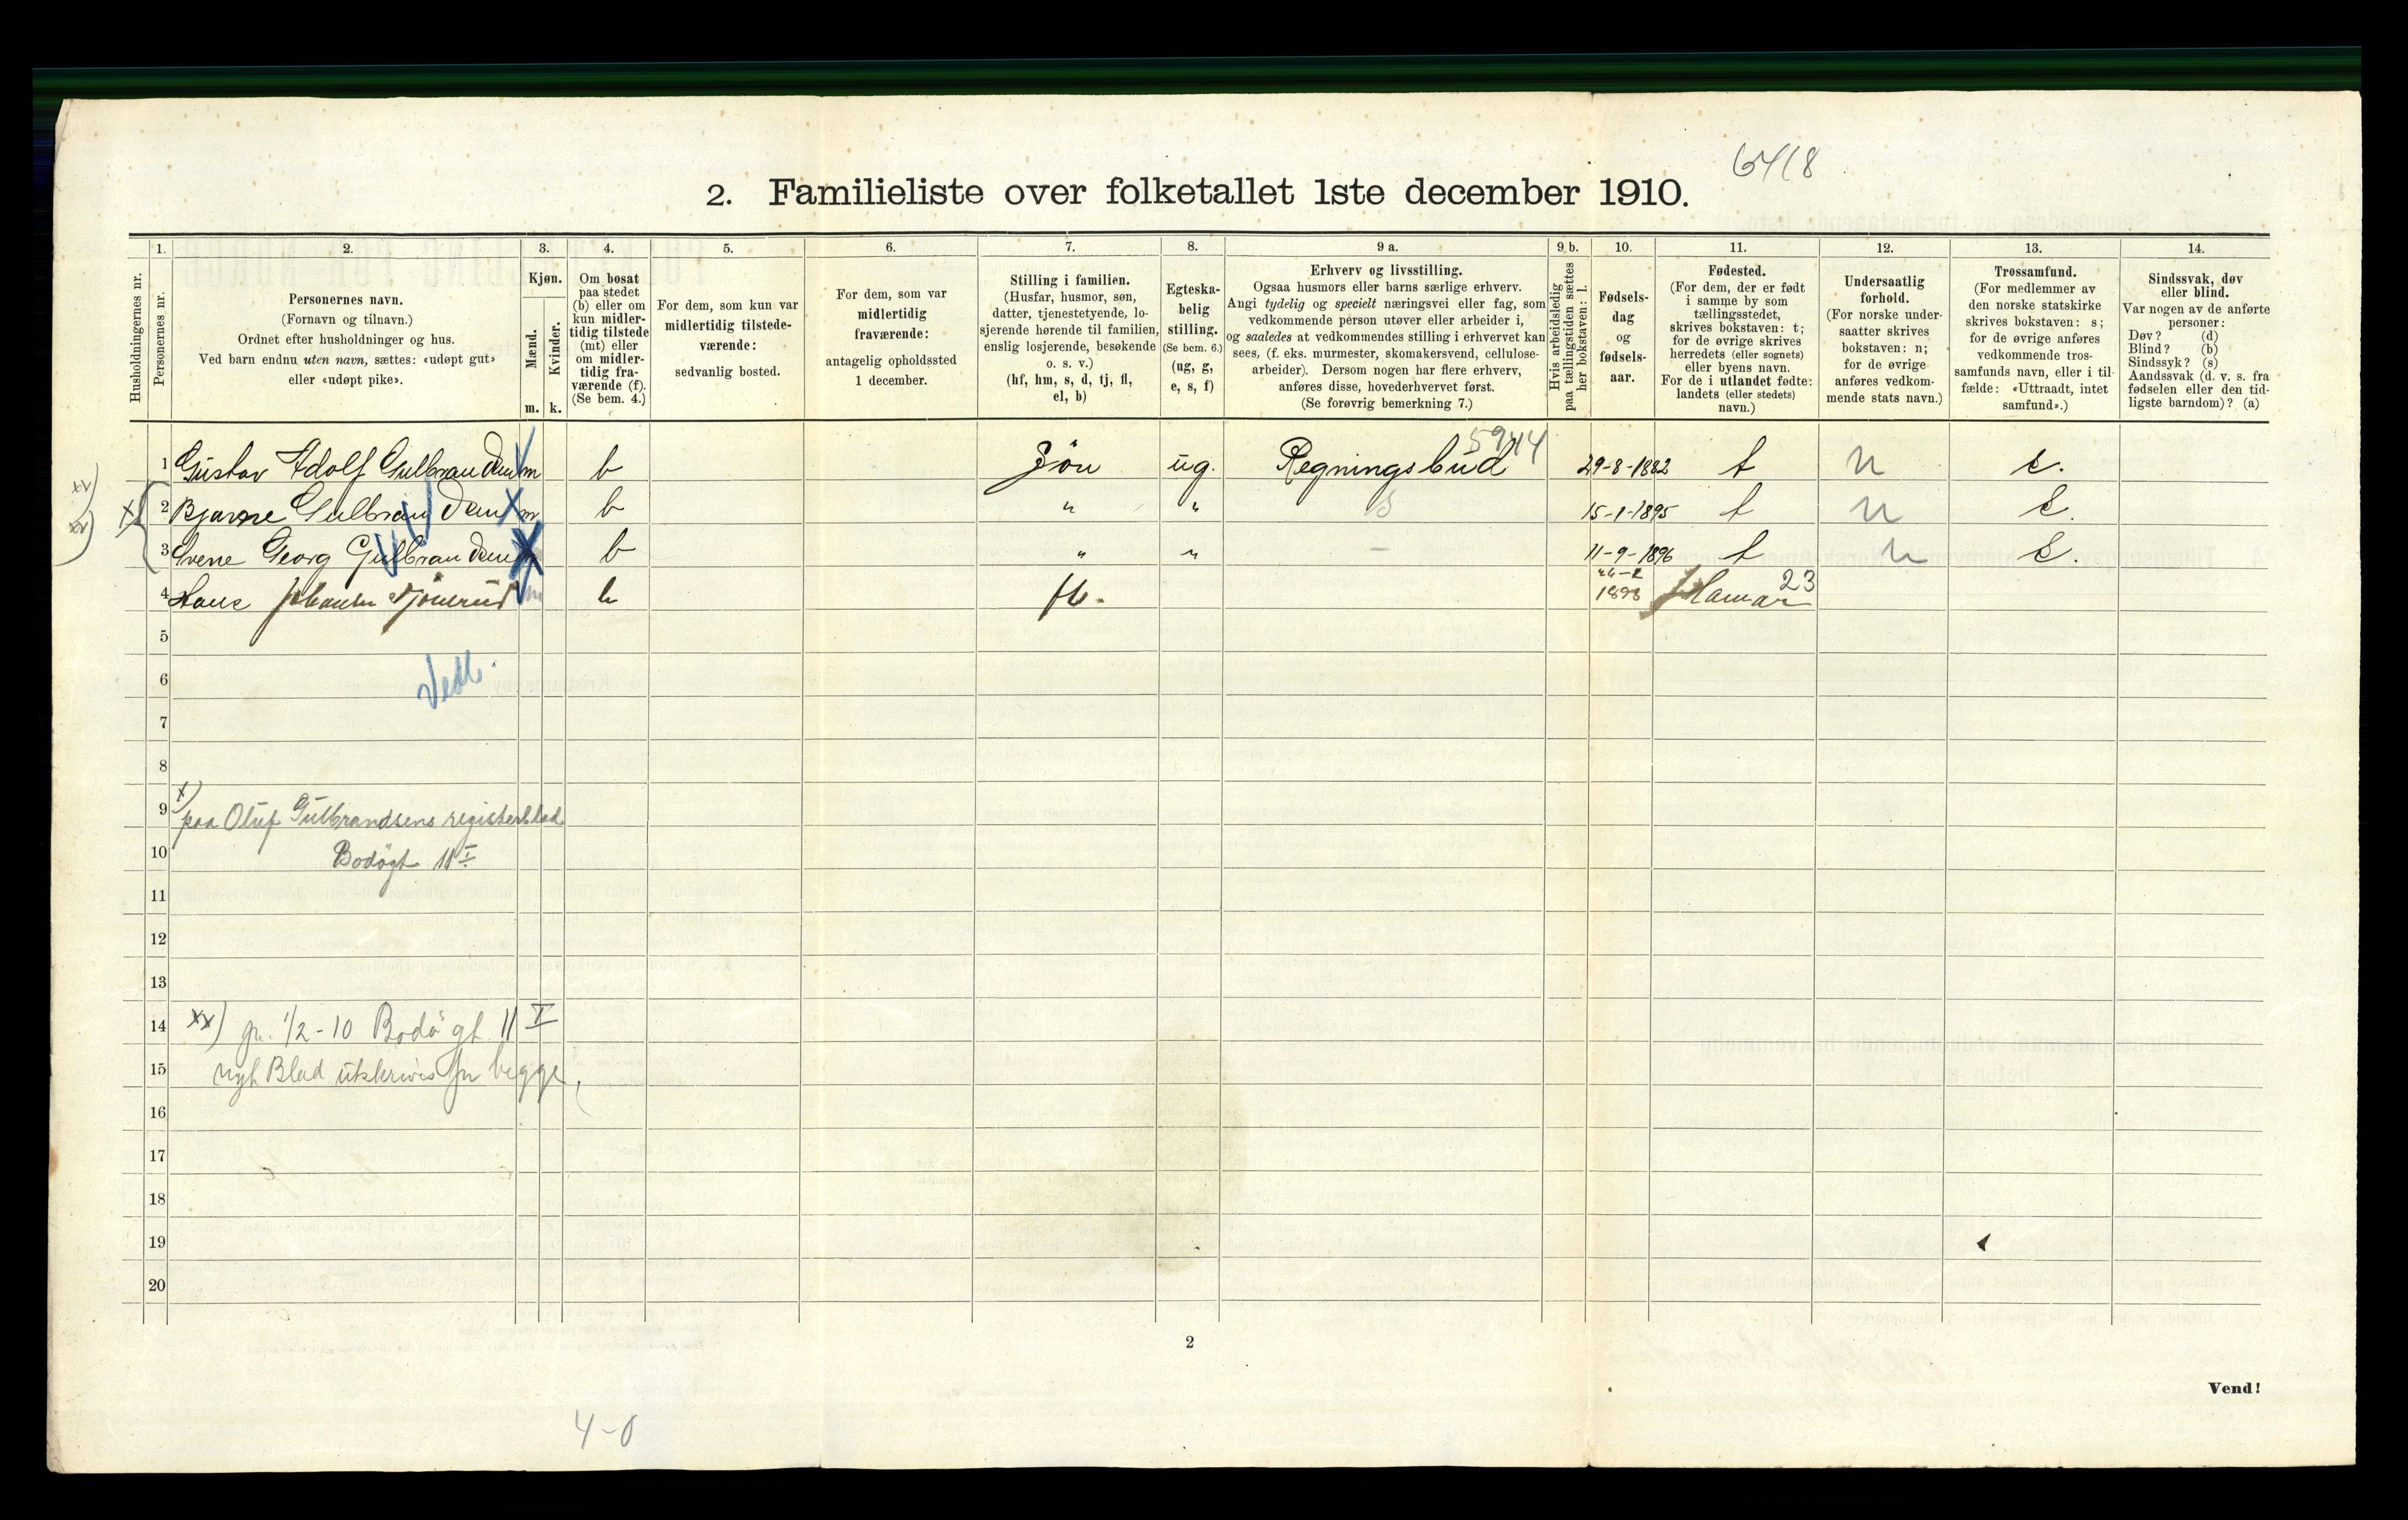 6418
2. Familieliste over folketallet 1ste december 1910.
Husholdningernes nr.
1.
Personernes nr.
2.
Personernes navn.
(Fornavn og tilnavn.)
Ordnet efter husholdninger og hus.
Ved barn endnu uten navn, sættes: «udøpt gut»
eller «udøpt pike».
3.
Kjøn.
Mænd.
Kvinder.
m. k.
4.
Om bosat
paa stedet
(b) eller om
kun midler-
tidig tilstede
(mt) eller
om midler-
tidig fra-
værende (f).
(Se bem. 4.)
5.
For dem, som kun var
midlertidig tilstede-
værende:
sedvanlig bosted.
6.
For dem, som var
midlertidig
fraværende:
antagelig opholdssted
1 december.
7.
Stilling i familien.
(Husfar, husmor, søn,
datter, tjenestetyende, lo-
sjerende hørende til familien,
enslig losjerende, besøkende
o. s. v.)
(hf, hm, s, d, tj, fl,
el, b)
8.
Egteska-
belig
stilling.
(Se bem. 6.)
(ug, g,
e, s, f)
9 a.
Erhverv og livsstilling.
Ogsaa husmors eller barns særlige erhverv.
Angi tydelig og specielt næringsvei eller fag, som
vedkommende person utøver eller arbeider i,
og saaledes at vedkommendes stilling i erhvervet kan
sees, (f. eks. murmester, skomakersvend, cellulose-
arbeider). Dersom nogen har flere erhverv,
anføres disse, hovederhvervet først.
(Se forøvrig bemerkning 7.)
9 b.
Hvis arbeidsledig
paa tællingstiden sættes
her bokstaven: l.
10.
Fødsels-
dag
og
fødsels-
aar.
11.
Fødested.
(For dem, der er født
i samme by som
tællingsstedet,
skrives bokstaven: t;
for de øvrige skrives
herredets (eller sognets)
eller byens navn.
For de i utlandet fødte:
landets (eller stedets)
navn.)
12.
Undersaatlig
forhold.
(For norske under-
saatter skrives
bokstaven: n;
for de øvrige
anføres vedkom-
mende stats navn.)
13.
Trossamfund.
(For medlemmer av
den norske statskirke
skrives bokstaven: s;
for de øvrige anføres
vedkommende tros-
samfunds navn, eller i til-
fælde: «Uttraadt, intet
samfund».)
14.
Sindssvak, døv
eller blind.
Var nogen av de anførte
personer:
Døv? (d)
Blind? (b)
Sindssyk? (s)
Aandssvak (d. v. s. fra
fødselen eller den tid-
ligste barndom)? (a)
5944
1 Gustav Adolf Gulbrandsen m b Søn ug. Regningsbud 29-8-1882 t n s.
xx) x) 2 Bjarne Gulbrandsen m b " " S 15-1-1895 t n s.
xx) 3 Sverre Georg Gulbrandsen m b " " - 11-9-1896 t n s.
4 Hans Johansen m b fl. 1893 Hamar 23
5
6
Vedl.
7
8
9 x) paa Oluf Gulbrandsens registerblad
10 Bodøgt 11 I
11
12
13
14 xx) pr. 1/2-10 Bodøgt. 11 I
15 nyt Blad utskrives for begge
16
17
18
19
20
2
Vend!
4-0